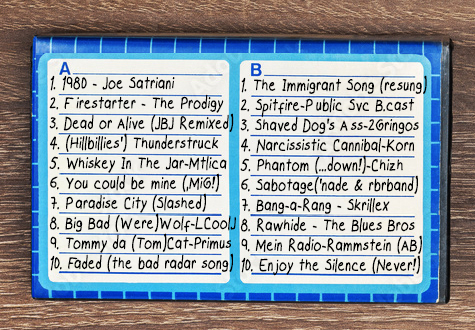 A
1. 1980 - Joe Satriani
2. Firestarter - The Prodigy
3. Dead or Alive (JBJ Remixed)
4. (Hillbillies') Thunderstruck
5. Whiskey In The Jar-Mtlica
6. You could be mine (MiG!)
7. Paradise City (Slashed)
8. Big Bad (Were)Wolf-LCoolJ
9. Tommy da (Tom)Cat-Primus
10. Faded (the bad radar song)
B
1. The Immigrant Song (resung)
2. Spitfire-Public Svc B.cast
3. Shaved Dog's Ass-2Gringos
4. Narcissistic Cannibal-Korn
5. Phantom (...down!)-Chizh
6. Sabotage('nade & rbrband)
7. Bang-a-Rang - Skrillex
8. Rawhide - The Blues Bros
9. Mein Radio-Rammstein (AB)
10. Enjoy the Silence (Never!)